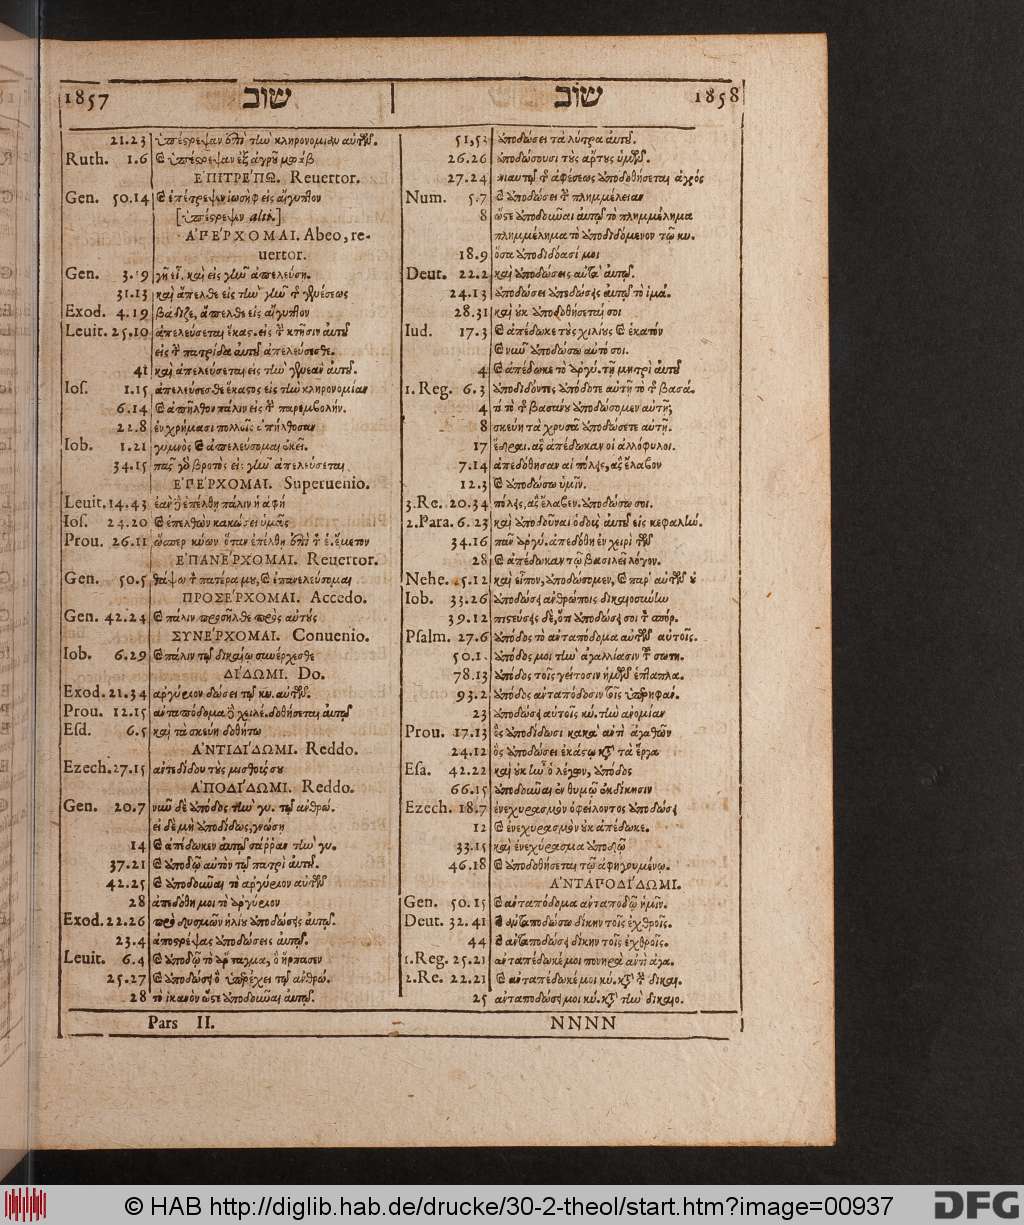 1857 שוב
21.23 ὑπέστρεψαν ἐπὶ τὴν κληρονομίαν αὐτῶν.
Ruth. 1.6 & ὑπέστρεψαν ἐξ ἀγροῦ μωάβ
ΕΠΙΤΡΕΠΩ. Reuertor.
Gen. 50.14 & ἐπέστρεψεν ἰωσὴφ εἰς αἴγυπτον
[ὑπέστρεψεν aliâ.]
ἈΠΕΡΧΟΜΑΙ. Abeo, re-
uertor.
Gen. 3.19 γῆ εἶ. καὶ εἰς γῆν ἀπελεύση.
31.13 καὶ ἄπελθε εἰς τὴν γῆν τ γενέσεως
Exod. 4.19 βάδιζε, ἄπελθε εἰς αἴγυπτον
Leuit. 25.10 ἀπελεύσεται ἕκας. εἰς τ κτῆσιν αὐτοῦ
εἰς τ πατρίδα αὐτοῦ ἀπελεύσεσθε.
41 καὶ ἀπελεύσεται εἰς τὴν γενεὰν αὐτοῦ.
Ios. 1.15 ἀπελεύσεσθε ἕκαστος εἰς τὴν κληρονομίαν
6.14 & ἀπῆλθον πάλιν εἰς τ παρεμβολήν.
22.8 ἐν χρήμασι πολλοῖς ἀπήλθοσαν
Iob. 1.21 γυμνὸς & ἀπελεύσομαι ἐκεῖ.
34.15 πᾶς βροτὸς εἰς γῆν ἀπελεύσεται
ἘΠΕΡΧΟΜΑΙ. Superuenio.
Leuit. 14.43 ἐὰν ἐπέλθη πάλιν ἡ ἁφή
Ios. 24.20 & ἐπελθὼν κακώσει ὑμᾶς
Prou. 26.11 ὥσπερ κύων ὅταν ἐπέλθη ἐπὶ τ ἑ. ἔμετον
ἘΠΑΝΕΡΧΟΜΑΙ. Reuertor.
Gen. 50.5 θάψω τ πατέρα μου, & ἐπανελεύσομαι
ΠΡΟΣΕΡΧΟΜΑΙ. Accedo.
Gen. 42.24 & πάλιν προσῆλθε πρὸς αὐτούς
ΣΥΝΕΡΧΟΜΑΙ. Conuenio.
Iob. 6.29 & πάλιν τῷ δικαίῳ συνέρχεσθε
ΔΙΔΩΜΙ. Do.
Exod. 21.34 ἀργύριον δώσει τῷ κυ. αὐτῶν.
Prou. 12.15 ἀνταπόδομα χειλέ. δοθήσεται αὐτῷ
Esd. 6.5 καὶ τὰ σκεύη δοθήτω
ἈΝΤΙΔΙΔΩΜΙ. Reddo.
Ezech. 27.15 ἀντεδίδου τοὺς μισθούς σου
ἈΠΟΔΙΔΩΜΙ. Reddo.
Gen. 20.7 νῦν δὲ ἀπόδος τὴν γυ. τῷ ἀνθρώ.
εἰ δὲ μὴ ἀποδίδως, γνώση
14 & ἀπέδωκεν αὐτῷ σάρραν τὴν γυ.
37.21 & ἀποδῷ αὐτὸν τῷ πατρὶ αὐτοῦ.
42.25 & ἀποδοῦναι τὸ ἀργύριον αὐτῶν
28 ἀπεδόθη μοι τὸ ἀργύριον
Exod. 22.26 πρὸ δυσμῶν ἡλίου ἀποδώσεις αὐτῷ.
23.4 ἀποστρέψας ἀποδώσεις αὐτῷ.
Leuit. 6.4 & ἀποδῷ τὸ ἅρπαγμα, ὃ ἥρπασεν
25.27 & ἀποδώσει ὃ ὑπερέχει τῷ ἀνθρώ.
28 τὸ ἱκανὸν ὥστε ἀποδοῦναι αὐτῷ.
Pars II.
שוב 1858
51,52 ἀποδώσει τὰ λύτρα αὐτοῦ.
26.26 ἀποδώσουσι τοὺς ἄρτους ὑμῶν.
27.24 νιαυτῷ τ ἀφέσεως ἀποδοθήσεται ἀγρός
Num. 5.7 & ἀποδώσει τ πλημμέλειαν
8 ὥστε ἀποδοῦναι αὐτῷ τὸ πλημμέλημα
πλημμέλημα τὸ ἀποδιδόμενον τῷ κυ.
18.9 ὅσα ἀποδιδόασί μοι
Deut. 22.2 καὶ ἀποδώσεις αὐτὰ αὐτῷ.
24.13 ἀποδώσει ἀποδώσεις αὐτῷ τὸ ἱμά.
28.31 καὶ οὐκ ἀποδοθήσεταί σοι
Iud. 17.3 & ἀπέδωκε τοὺς χιλίους & ἑκατὸν
& νῦν ἀποδώσω αὐτό σοι.
4 & ἀπέδωκε τὸ ἀργύ. τῇ μητρὶ αὐτοῦ
1. Reg. 6.3 ἀποδιδόντες ἀπόδοτε αὐτῇ τὸ τ βασά.
4 τί τὸ τ βασάνου ἀποδώσομεν αὐτῇ;
8 σκεύη τὰ χρυσᾶ ἀποδώσετε αὐτῇ.
17 ἕδραι. ἃς ἀπέδωκαν οἱ ἀλλόφυλοι.
7.14 ἀπεδόθησαν αἱ πόλεις, ἃς ἔλαβον
12.3 & ἀποδώσω ὑμῖν.
3. Re. 20.34 πόλεις, ἃς ἔλαβεν. ἀποδώσω σοι.
2. Para. 6.23 καὶ ἀποδοῦναι ὁδοὺς αὐτοῦ εἰς κεφαλήν.
34.16 πᾶν ἀργύ. ἀπεδόθη ἐν χειρὶ τῶν
28 & ἀπέδωκαν τῷ βασιλεῖ λόγον.
Nehe. 5.12 καὶ εἶπον, ἀποδώσομεν, & παρ' αὐτῶν οὐ
Iob. 33.26 ἀποδώσει ἀνθρώποις δικαιοσύνην
39.12 πιστεύσεις δὲ, ὅτι ἀποδώσει σοι τ σπόρ.
Psalm. 27.6 ἀπόδος τὸ ἀνταπόδομα αὐτῶν αὐτοῖς.
50.1. ἀπόδος μοι τὴν ἀγαλλίασιν τ σωτη.
78.13 ἀπόδος τοῖς γείτοσιν ἡμῶν ἑπταπλα.
93.2 ἀπόδος ἀνταπόδοσιν τοῖς ὑπερηφάν.
23 ἀποδώσει αὐτοῖς κύ. τὴν ἀνομίαν
Prou. 17.13 ὃς ἀποδίδωσι κακὰ ἀντὶ ἀγαθῶν
24.12 ὃς ἀποδώσει ἑκάστῳ κατὰ τὰ ἔργα
Esa. 42.22 καὶ οὐκ ἦν ὁ λέγων, ἀπόδος
66.15 ἀποδοῦναι ἐν θυμῷ ἐκδίκησιν
Ezech. 18.7 ἐνεχυρασμὸν ὀφείλοντος ἀποδώσει
12 & ἐνεχυρασμὸν οὐκ ἀπέδωκε.
33.15 καὶ ἐνεχύρασμα ἀποδῷ
46.18 & ἀποδοθήσεται τῷ ἀφηγουμένῳ.
ἈΝΤΑΠΟΔΙΔΩΜΙ.
Gen. 50.15 & ἀνταπόδομα ἀνταποδῷ ἡμῖν.
Deut. 32.41 & ἀνταποδώσω δίκην τοῖς ἐχθροῖς.
44 & ἀνταποδώσει δίκην τοῖς ἐχθροῖς.
1. Reg. 25.21 ἀνταπέδωκέ μοι πονηρὰ ἀντὶ ἀγα.
2. Re. 22.21 & ἀνταπέδωκέ μοι κύ. κατὰ τ δικαι.
25 ἀνταποδώσει μοι κύ. κατὰ τὴν δικαιο.
NNNN
© HAB http://diglib.hab.de/drucke/30-2-theol/start.htm?image=00937
DFG